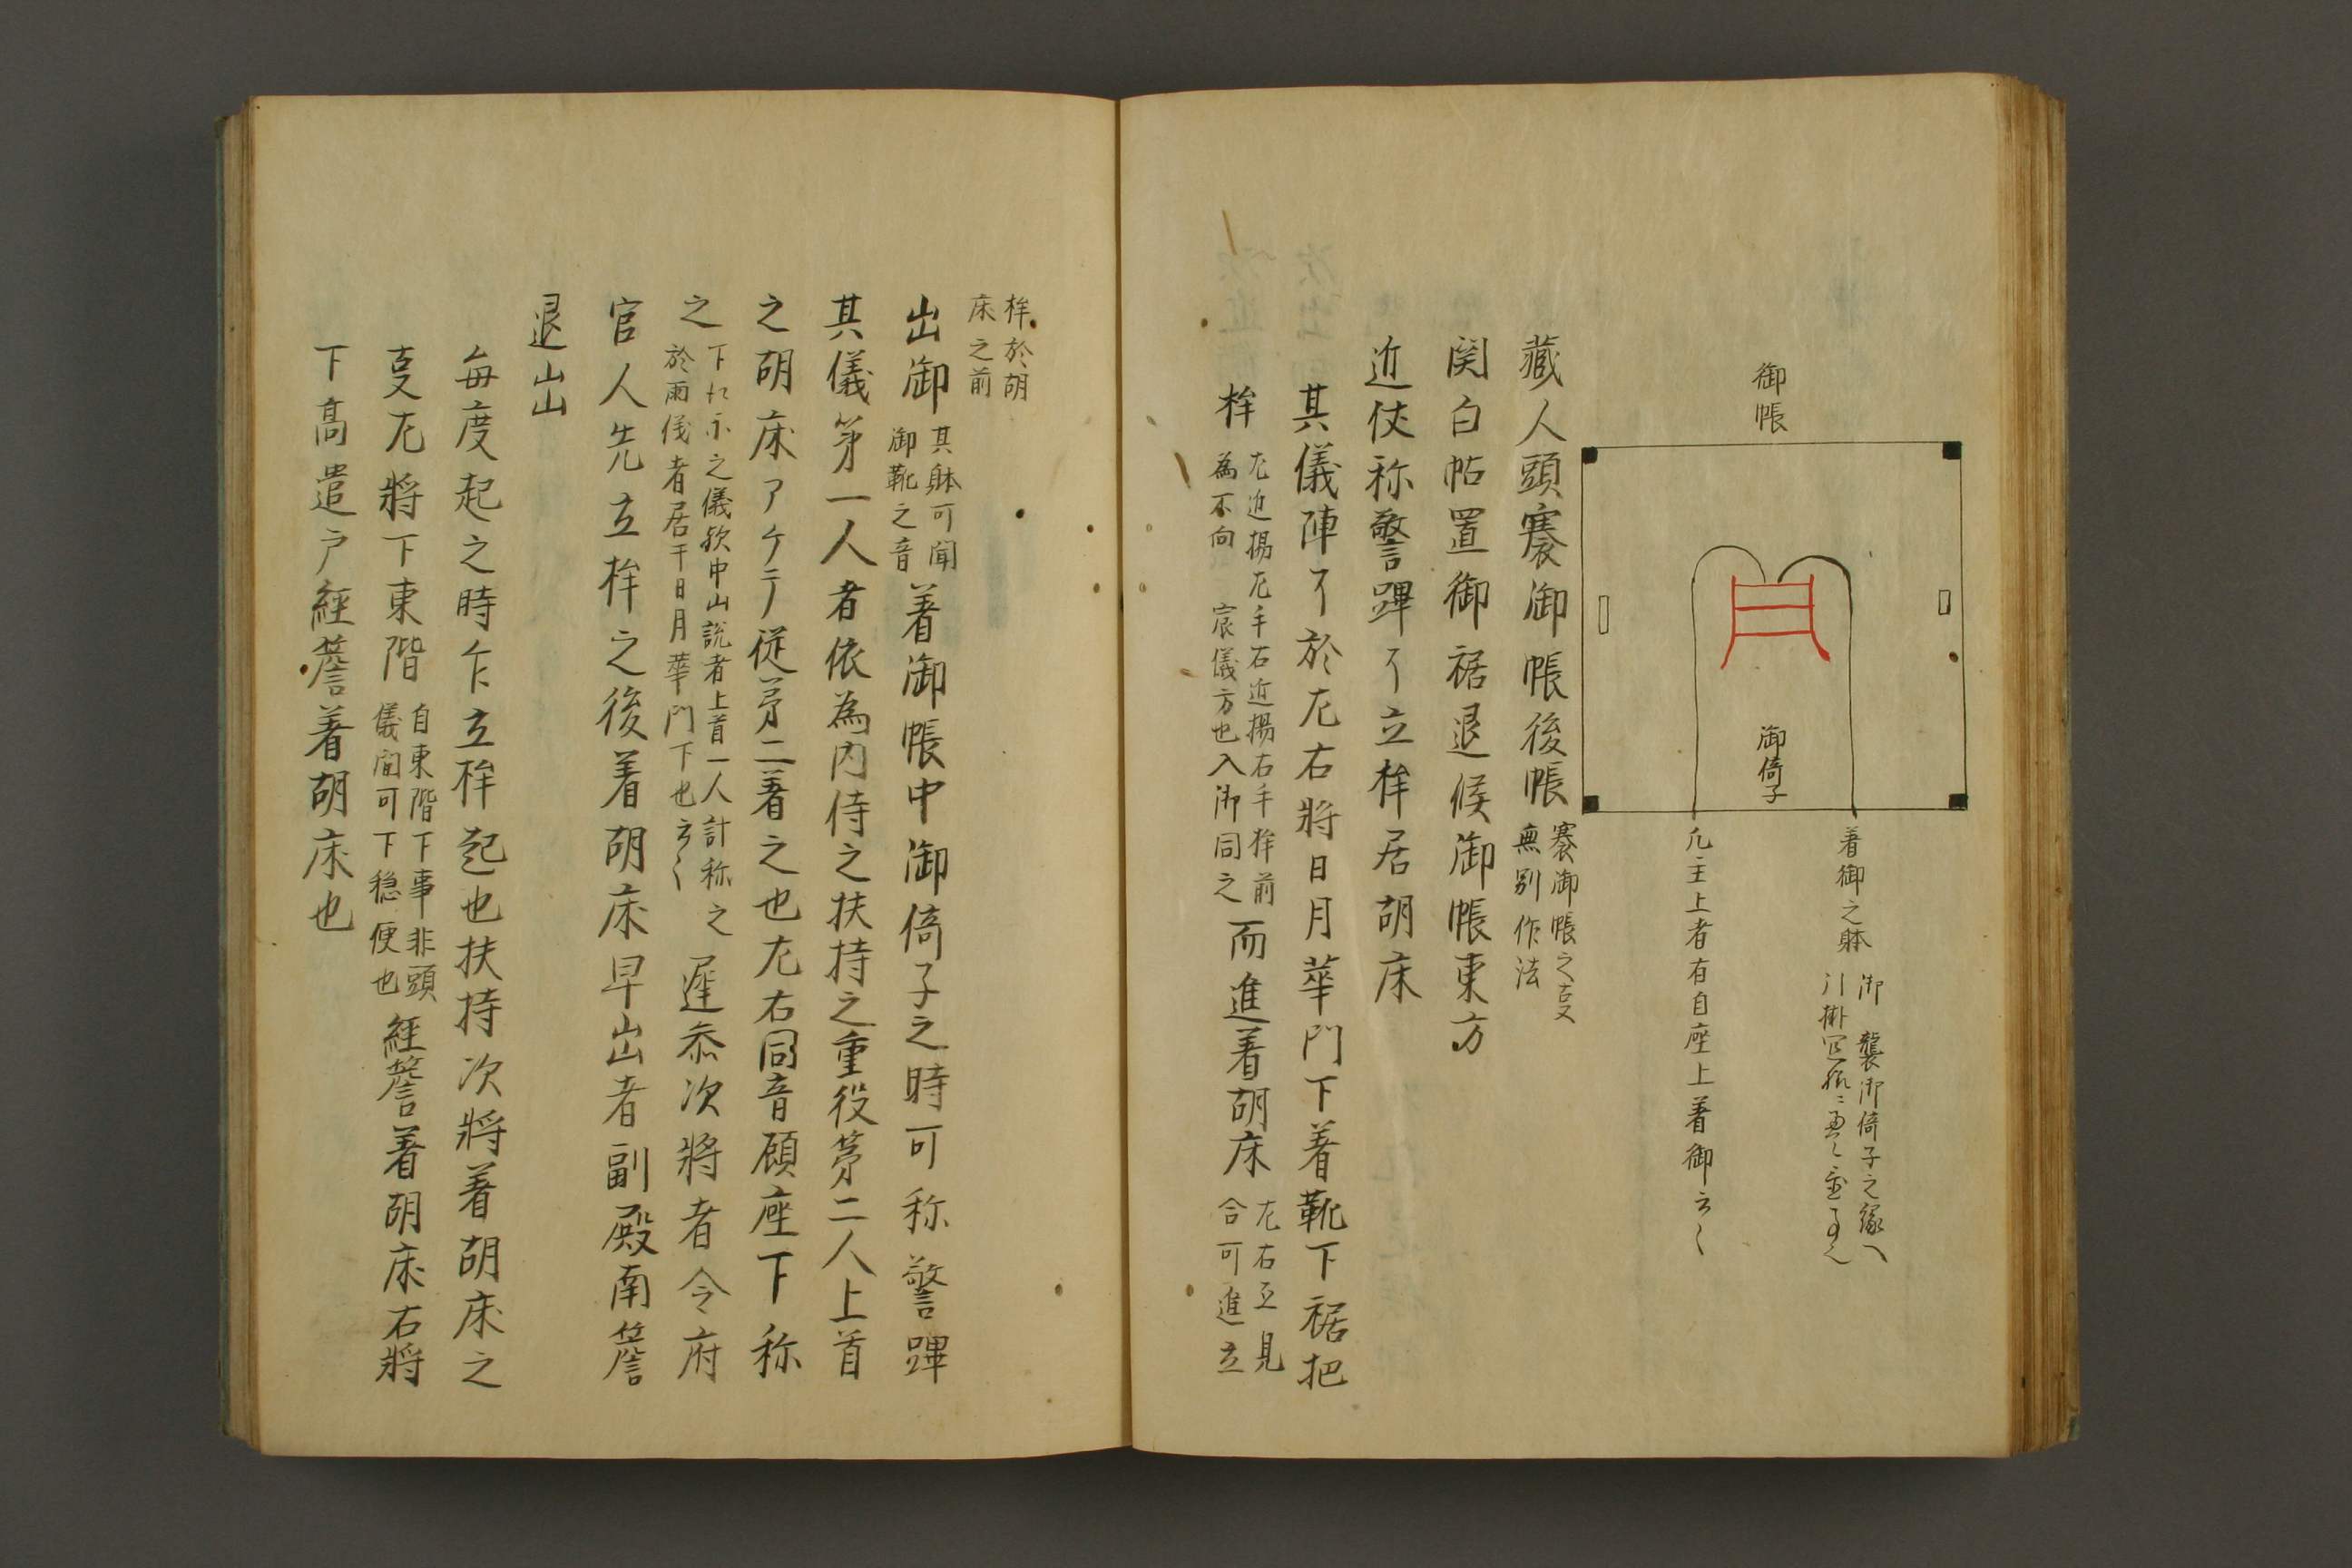 御帳
御倚子
着御之躰
御襲御倚子之縁へ
引掛
凡主上者有自座上着御云〻
藏人頭褰御帳後帳
褰御帳之叓
無別作法
関白帖置御裾退候御帳東方
近仗称警蹕了立桙居胡床
其儀陣了於左右將日月華門下着靴下裾把
桙
左近揚左手右近揚右手桙前
為不向宸儀方也入御同之
而進着胡床
左右互見
合可進立
桙於胡
床之前
出御
其躰可聞
御靴之音
着御帳中御倚子之時可称警蹕
其儀第一人者依為内侍之扶持之重役第二人上首
之胡床アケテ従第二着之也左右同音顧座下称
之
下之儀欤中山說者上首一人計称之
於雨儀者居干日月華門下也云〻
遲叅次將者令府
官人先立桙之後着胡床早出者副殿南簷
退出
每度起之時乍立桙起也扶持次將着胡床之
叓左將下東階
自東階下事非頭
儀間可下穏便也
經簷着胡床右將
下高遣戸經簷着胡床也